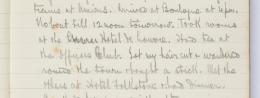 trains at Amiens. Arrived at Boulogne at 4 pm.
No boat till 12 noon tomorrow. Took rooms
at the Hotel de Louvre. Had tea at
the Officers Club. Got my hair cut & wandered
round the town bought a stick. Met the
others at Hotel Folkstone & had Dinner.